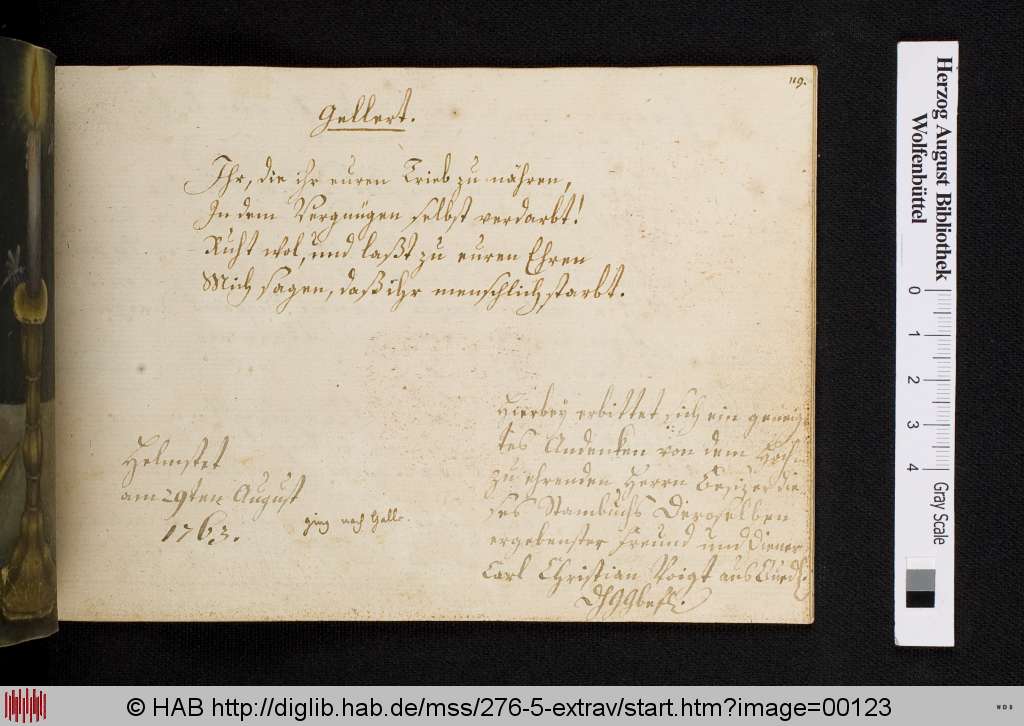 119.
Gellert.
Ihr, die ihr euren Trieb zu nähren,
In dem Vergnügen selbst verdarbt!
Ruht wol, und laßt zu euren Ehren
Mich sagen, daß ihr menschlich starbt.
Helmstet
am 29ten August
1763.
ging nach Halle.
Hierbey erbittet sich ein geneig
tes Andenken von dem Hoch
zu ehrenden Herrn Besizer die
ses Stambuchs Deroselben
ergebenster Freund und Diener
Carl Christian Voigt aus Quedl.
Herzog August Bibliothek
Wolfenbüttel
0
1
2
3
4
Gray Scale
© HAB http://diglib.hab.de/mss/276-5-extrav/start.htm?image=00123